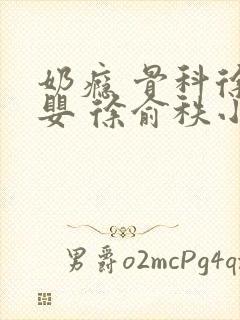 奶瘾 骨科徐
婴 徐俞秩小
男爵o2mcPg4q